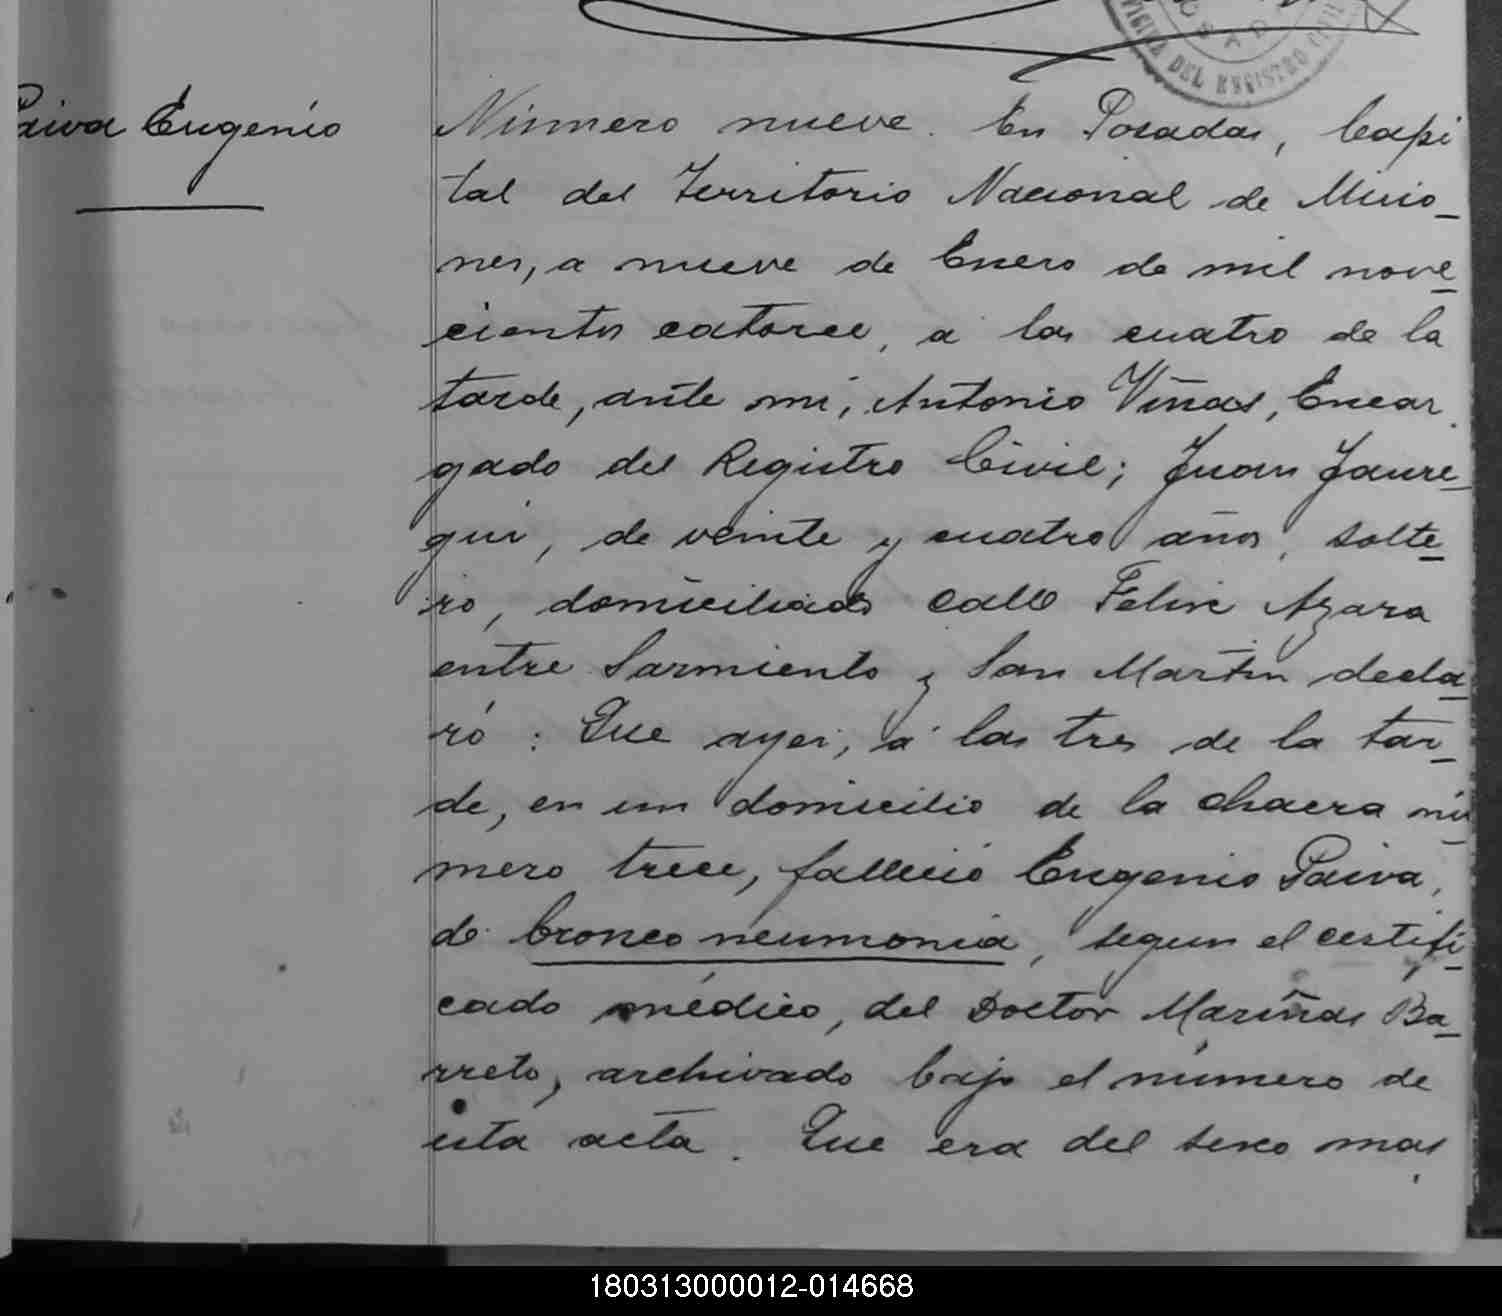 OFICINA DEL REGISTRO CIVIL
Paiva Eugenio
Número nueve. En Posadas, Capi
tal del Territorio Nacional de Misio_
nes, a nueve de Enero de mil nove_
cientos catorce, á las cuatro de la
tarde, ante mí, Antonio Viñas, Encar_
gado del Registro Civil; Juan Jaure_
gui, de veinte y cuatro años, solte_
ro, domiciliado calle Felix Azara
entre Sarmiento y San Martin decla_
ró: Que ayer, á las tres de la tar_
de, en un domicilio de la chacra nú_
mero trece, falleció Eugenio Paiva,
de bronco neumonia, segun el certifi_
cado médico, del Doctor Mariñas Ba_
rreto, archivado bajo el número de
esta acta. Que era del sexo mas
180313000012-014668